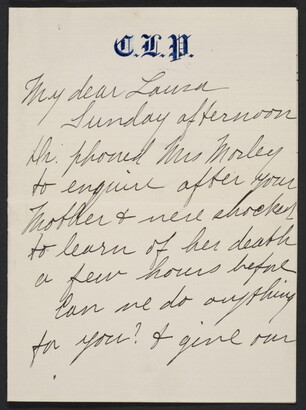 C.L.P.
My dear Laura
Sunday afternoon
phoned Mrs Morley
to enquire after your
Mother & were shocked
to learn of her death
a few hours before
Can we do anything
for you? & give our